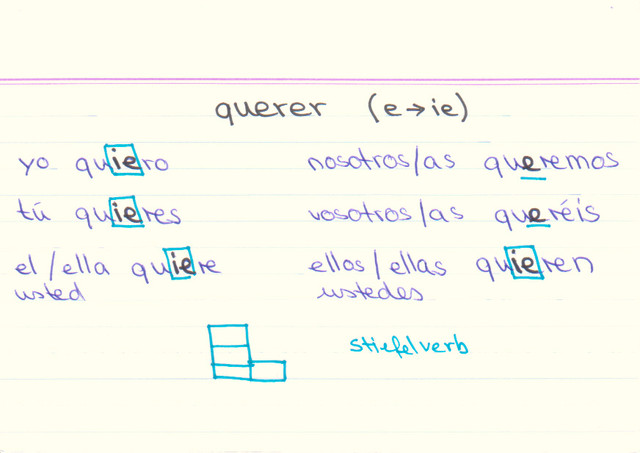 querer (e→ie)
yo quiero nosotros/as queremos
tú quieres vosotros/as queréis
el/ella quiere ellos/ellas quieren
usted ustedes
stiefelverb